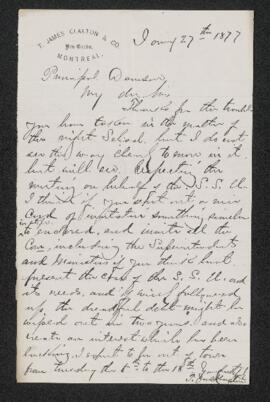 T. JAMES CLAXTON & CO.
MONTREAL.
Jany 27th 1877
Principal Dawson,
My dr Sir
Thanks for the trouble
you have taken in the matter of
the night School, but I do not
see the way clear to move in it,
but will see. Respecting the
meeting on behalf of the S. S. U.
I think if you get out a nice
Card of invitation something similar
to enclosed, and invite all the
Com, including the Superintendents
and Ministers if you think best
present the case of the S. S. U. and
its needs, and if well followed
up the dreadful debt might be
wiped out in two years and also
create an interest which has been
lacking. I expect to be out of town
from Tuesday the 6th to the 18th